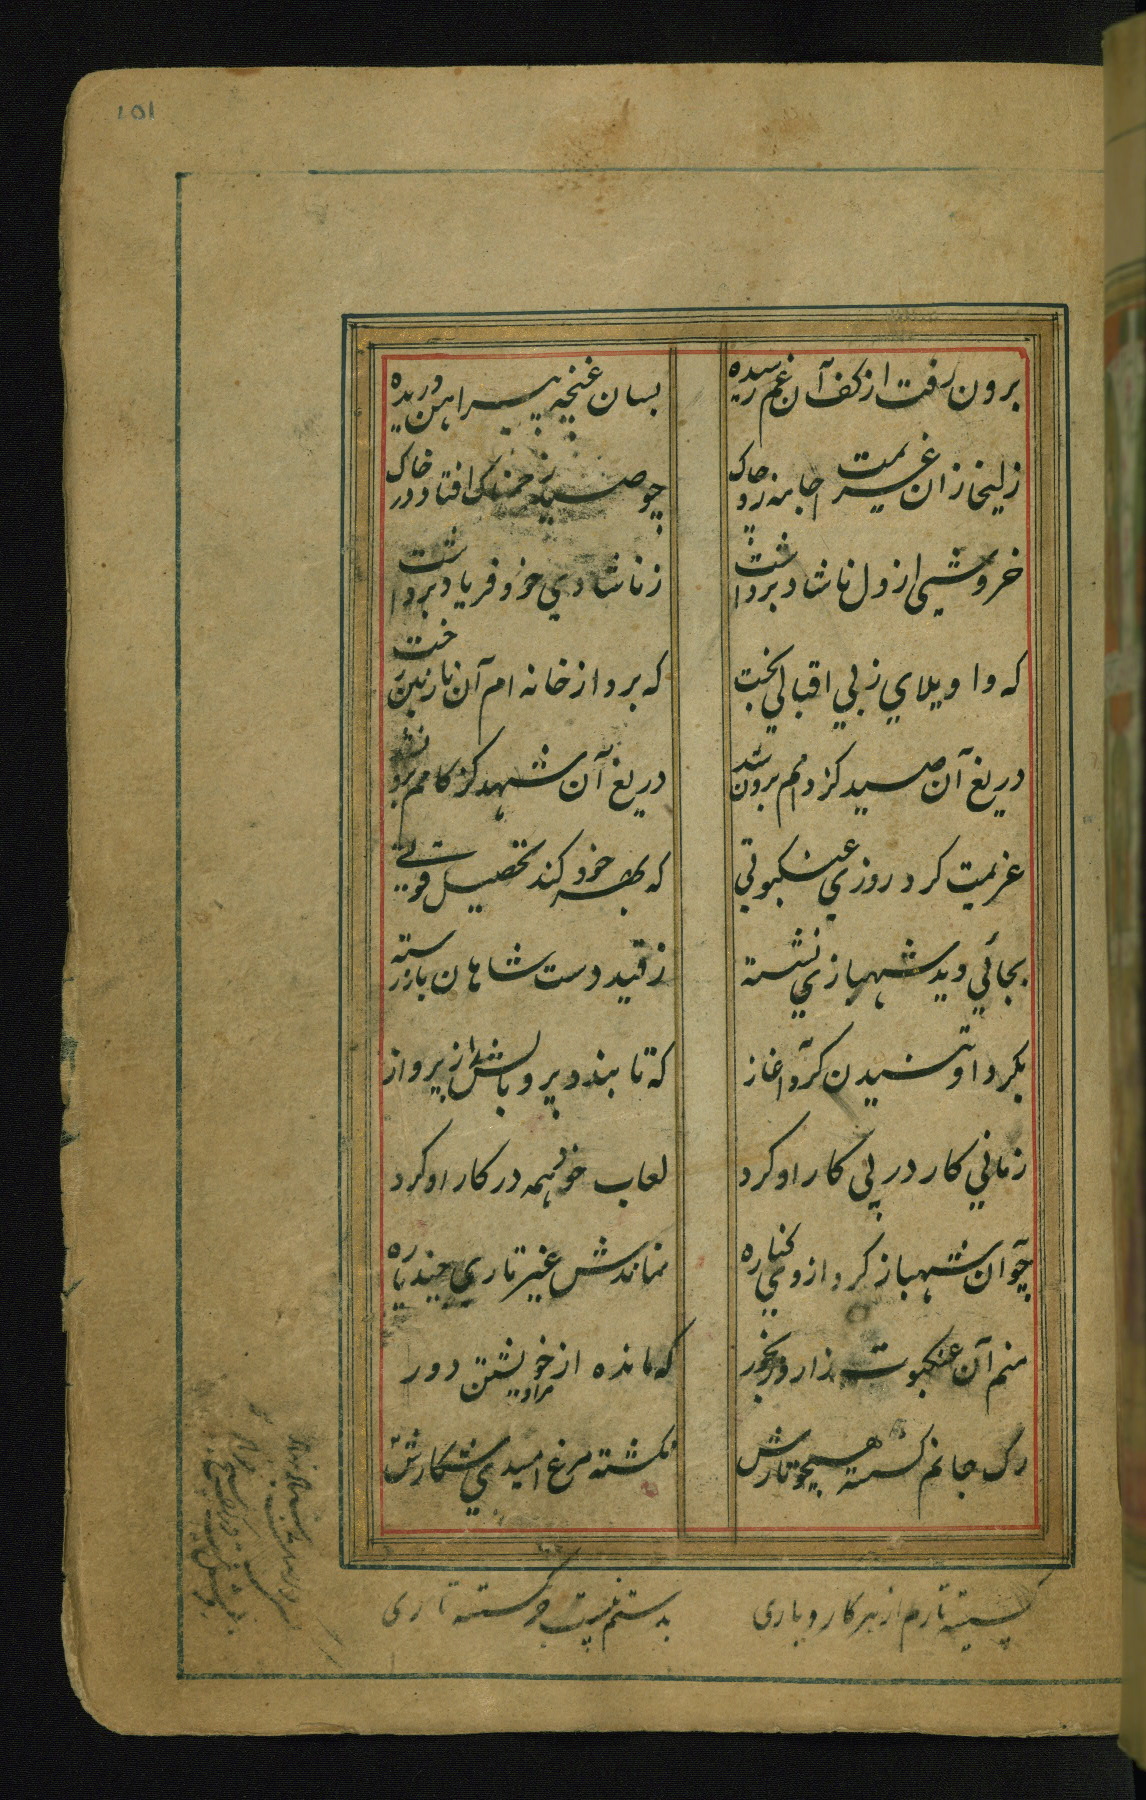 ١٥١
برون رفت از کف آن غم رسیده بسان غنچه پیراهن دریده
زلیخا زان غریمت جامه زد چاک چو صید زخمناک افتاد در خاک
خروشی از دل ناشاد برداشت ز ناشادی خود فریاد برداشت
که واویلای ز بی اقبالی بخت که برد از خانه ام آن نازنین رخت
دریغ آن صید کز دامم برون شد دریغ آن شهد کز کامم برون شد
عزیمت کرد روزی عنکبوتی که بهر خود کند تحصیل قوتی
بجائی دید شهبازی نشسته ز قید دست شاهان باز رسته
بگرد او تنیدن کرد آغاز که تا بندد پر و بالش ز پرواز
زمانی کار در پی کار او کرد لعاب خود همه در کار او کرد
چو آن شهباز کرد از وی کناره نماندش غیر تاری چند پاره
منم آن عنکبوت زار و رنجور که مانده از مراد خویشتن دور
رگ جانم گسسته همچو تارش نگشته مرغ امیدی شکارش
گسسته تارم از هر کار و باری بدستم نیست جز گسسته تاری